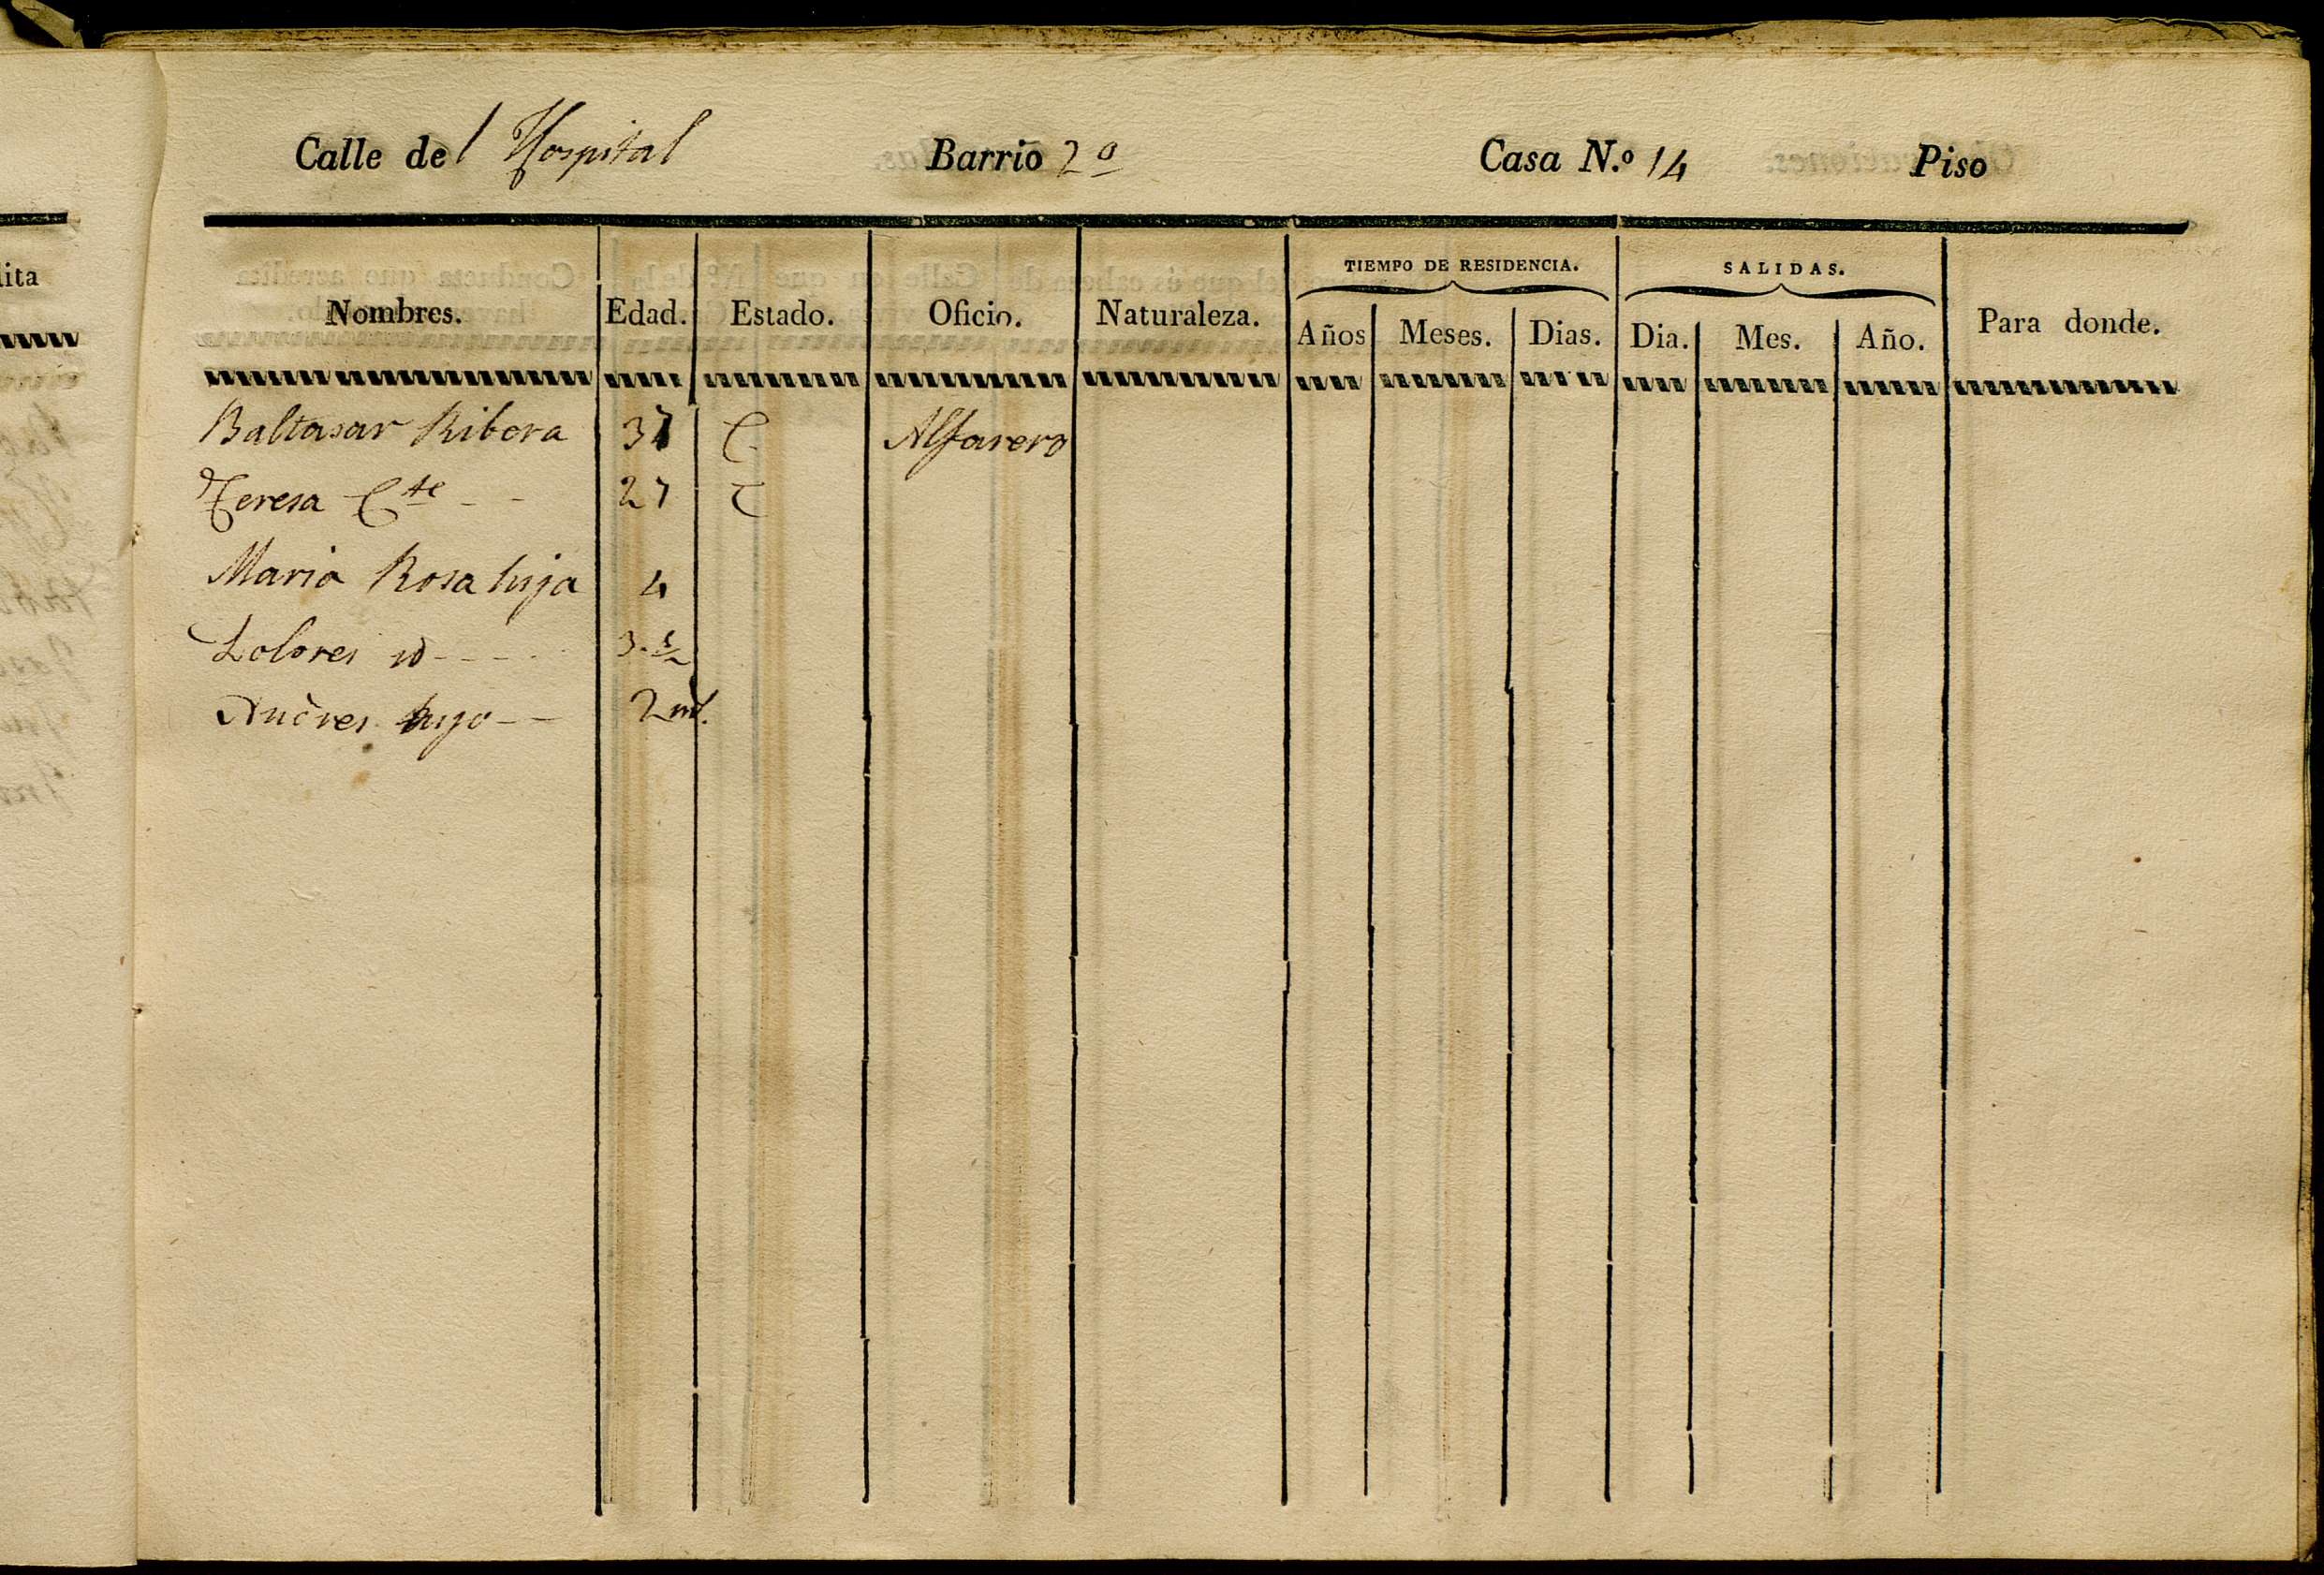 Calle del Hospital Barrio 2º Casa N.º 14 Piso
lita
TIEMPO DE RESIDENCIA. SALIDAS.
Nombres. Edad. Estado. Oficio. Naturaleza. Años Meses. Dias. Dia. Mes. Año. Para donde.
Baltasar Ribera C. Alfarero
Teresa Cte - - 27 C
Maria Rosa hija 4
Dolores id - - - - 3
Andres hijo - - 2 m.